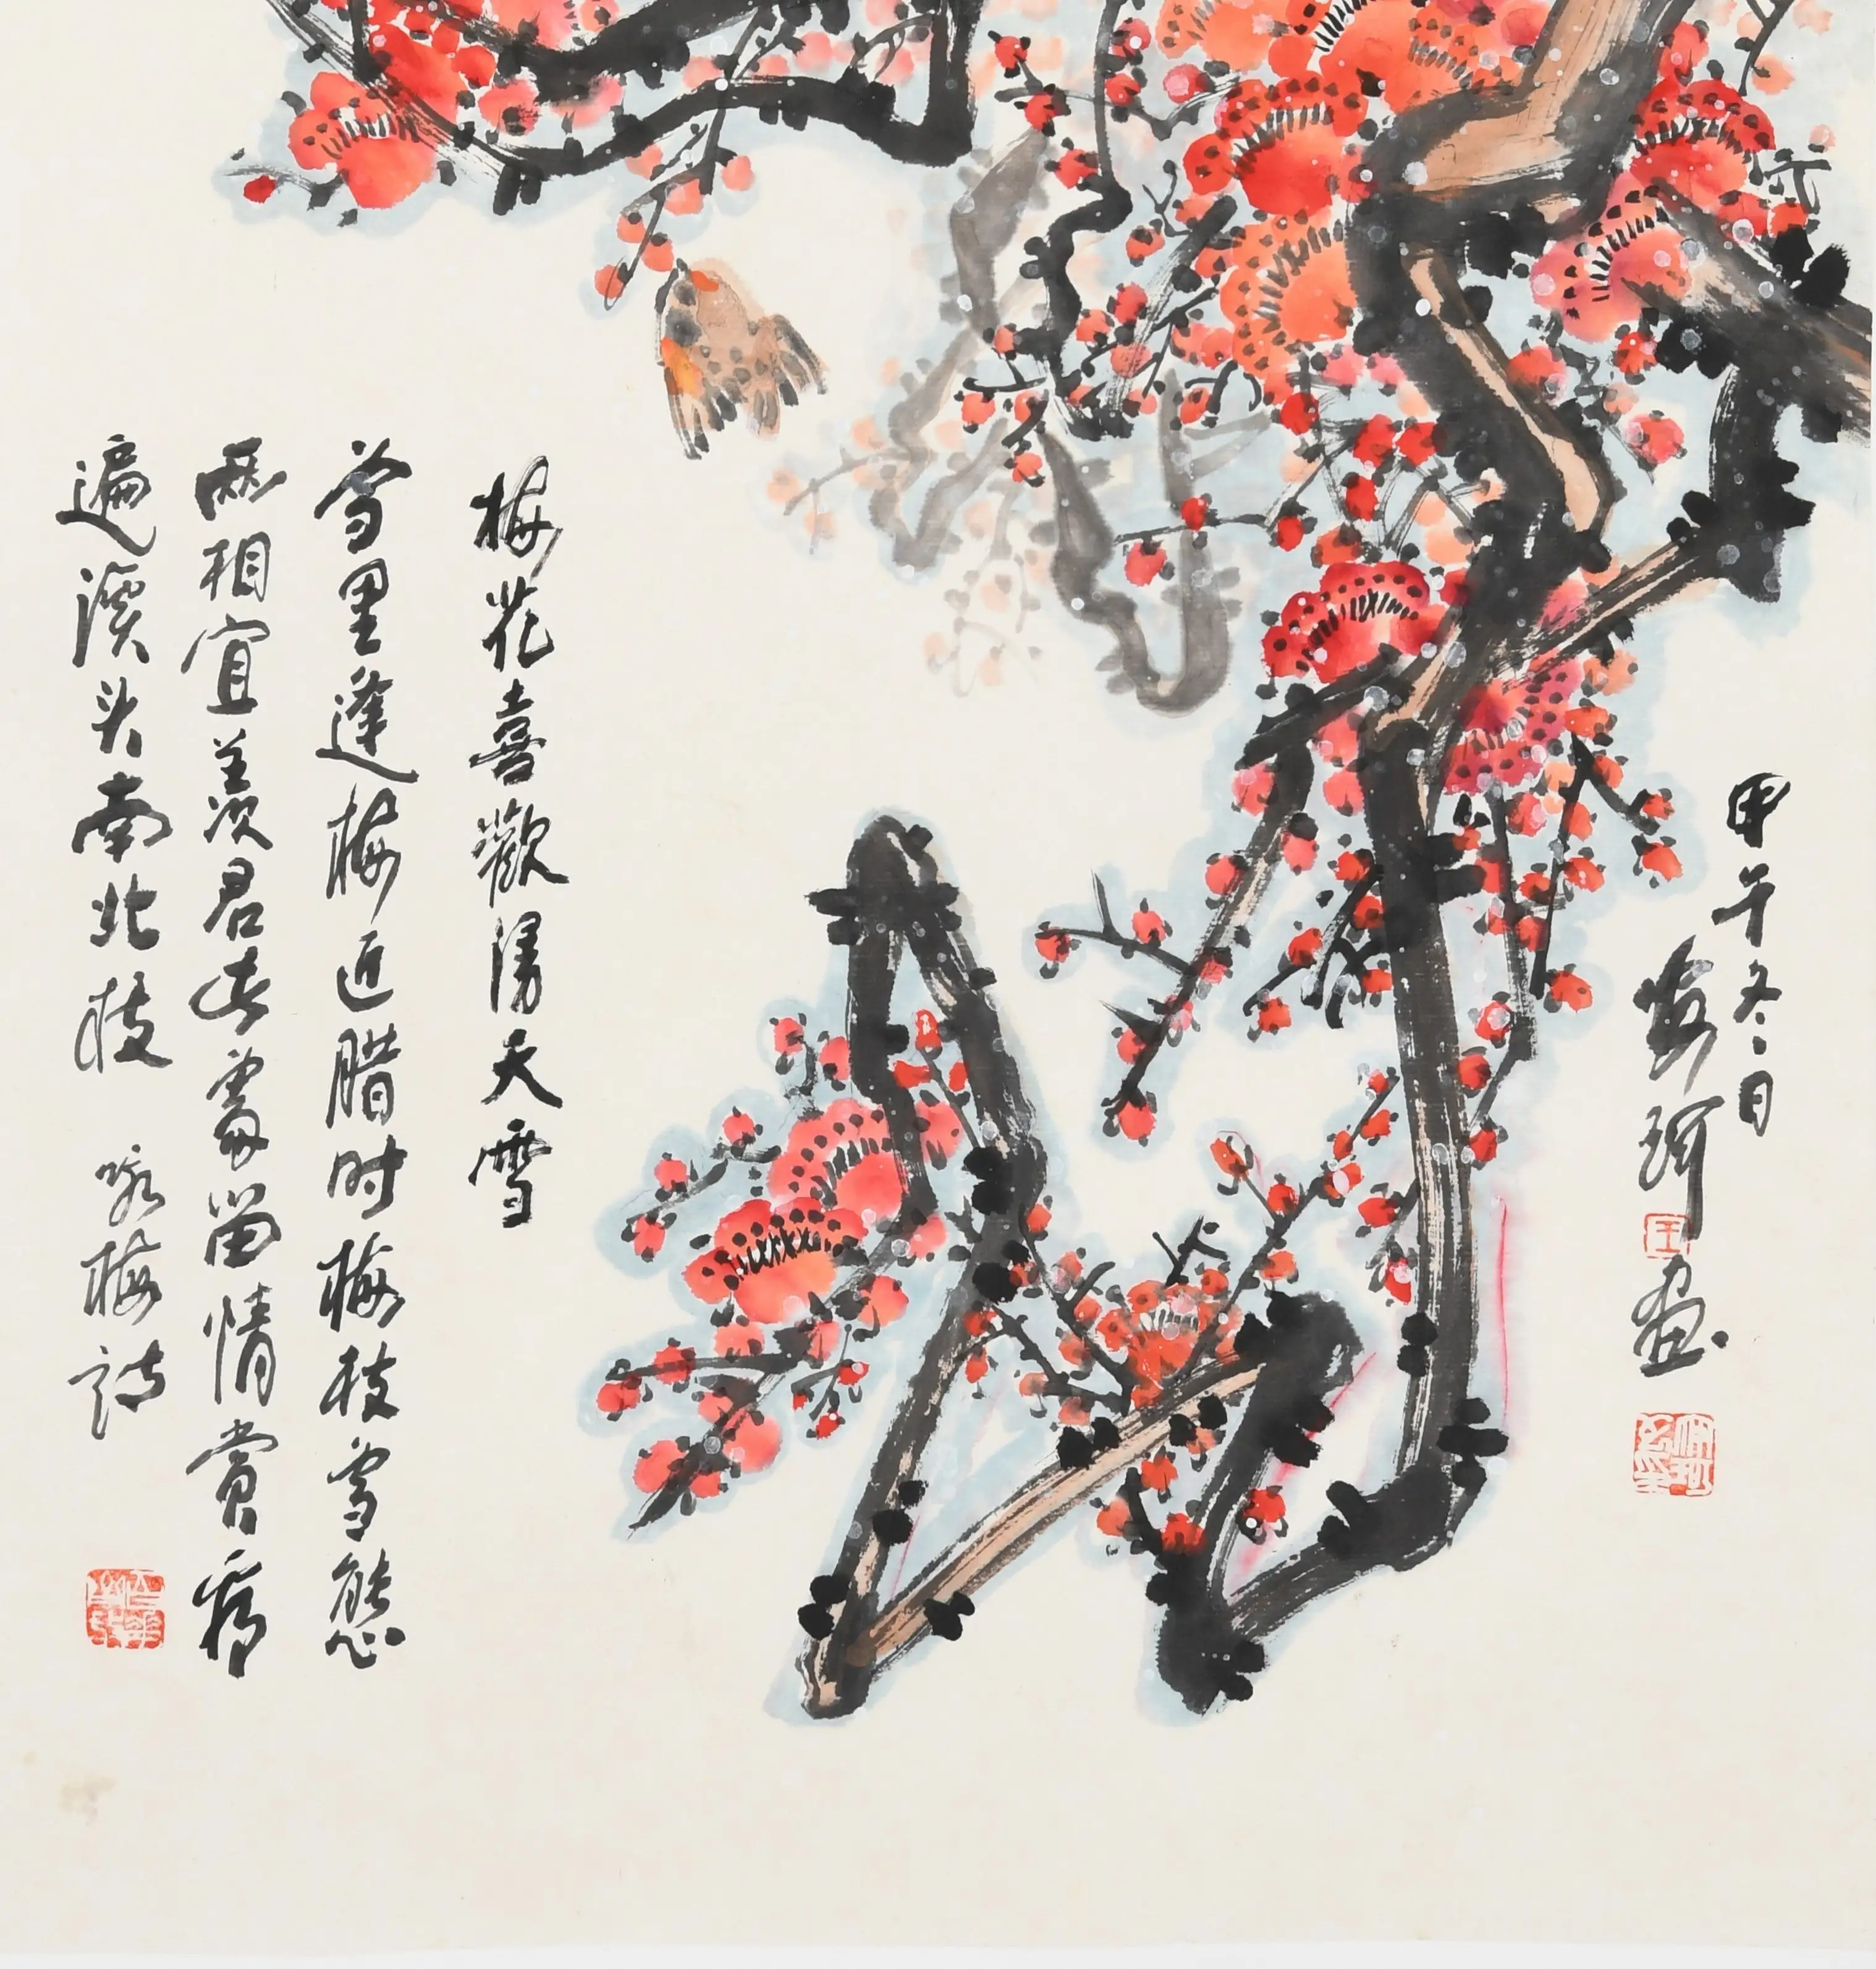 甲午冬日
珂画
梅花喜歡漫天雪
雪里逢梅近腊时梅枝雪態
兩相宜羡君去處留情賞看
遍溪头南北枝 咏梅詩